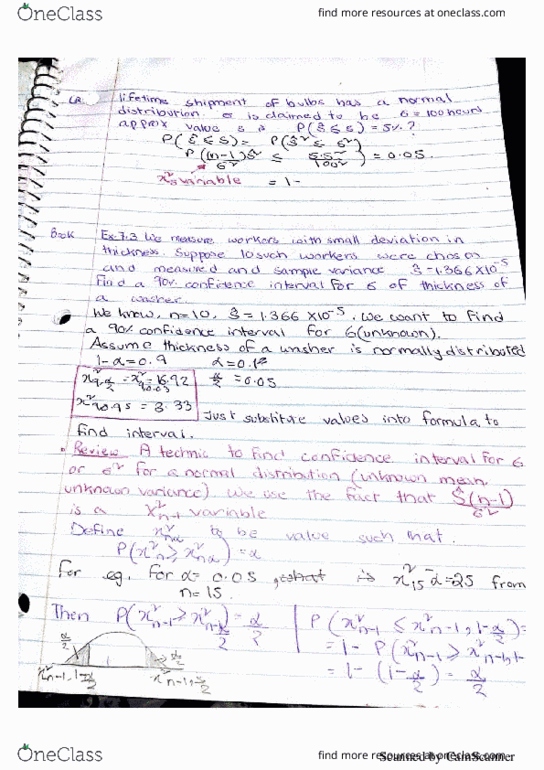 OneClass
find more resources at oneclass.com
lifetime shipment of bulbs has a normal
distribution. σ is claimed to be 6 = 100 hours
approx value s is P(ŝ ≤ s) = 5%?
P(ŝ ≤ s) = P(ŝ² ≤ s²)
= 0.05
variable = 1-
Book Ex 7.3 We measure workers with small deviation in
thickness. Suppose 10 such workers were chosen
and measured and sample variance ŝ = 1.366 × 10⁻⁵
Find a 90% confidence interval for σ of thickness of
a washer.
We know, n=10, ŝ = 1.366 × 10⁻⁵. We want to find
a 90% confidence interval for σ (unknown).
Assume thickness of a washer is normally distributed
1-α = 0.9
α/2 = 0.05
= 16.92
= 3.33
Just substitute values into formula to
find interval.
• Review A technic to find confidence interval for σ
or σ² for a normal distribution (unknown mean,
unknown variance). We use the fact that Ŝ(n-1)/σ²
is a χ²n-1 variable
Define χ²n,α to be value such that.
P(χ²n ≥ χ²n,α) = α
For eg. for α = 0.05 χ²15,α = 25 from
n = 15.
Then P(χ²n-1 ≥ χ²n-1,α/2) = α/2
P(χ²n-1 ≤ χ²n-1,1-α/2) =
= 1 - P(χ²n-1 ≥ χ²n-1,1-
= 1 - (1-α/2) = α/2
α/2
α/2
χ²n-1,1-α/2
χ²n-1,α/2
OneClass
find more resources at oneclass.com
Scanned by CamScanner